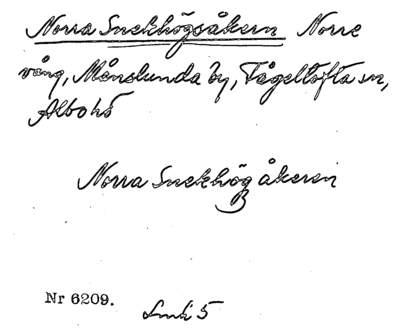 Norra Snekhögsåkern Norre
vång, Månslunda by, Fågeltofta sn,
Albo hd
Norra Snekhög åkeren
B
Nr 6209.
Lmk 5